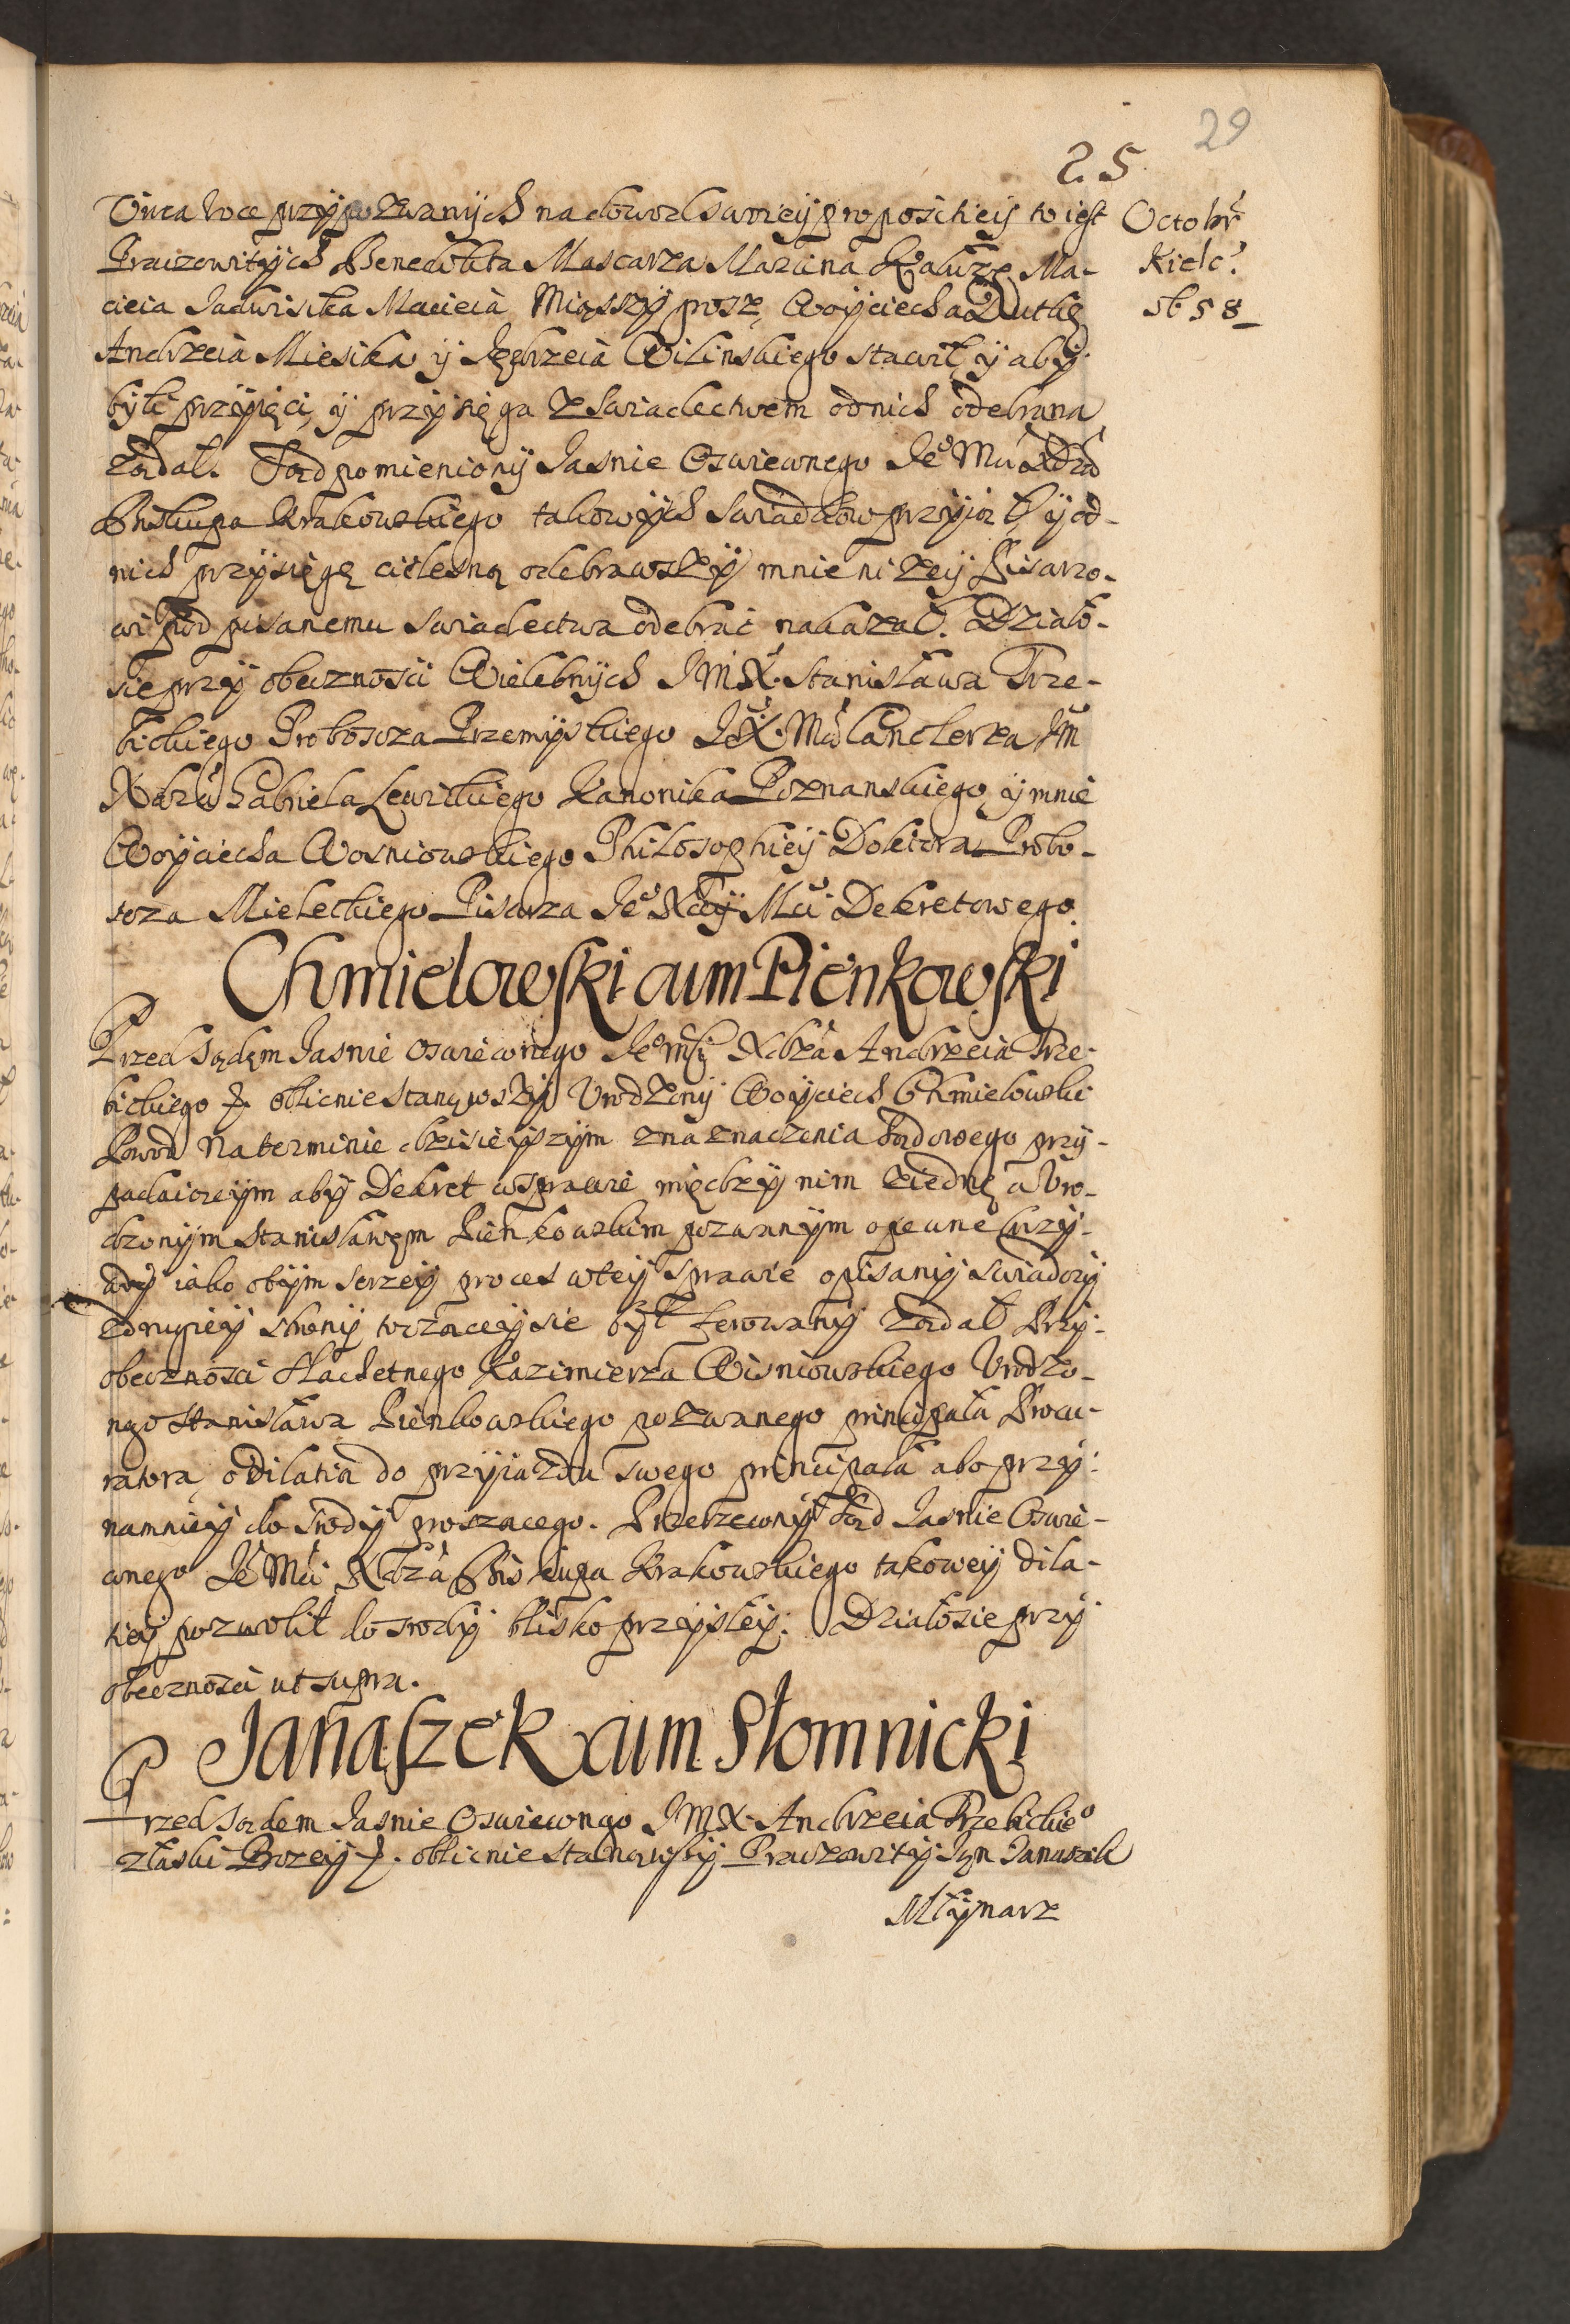 29
25
Viva voce przypozwanych na dowod swoiey propositiey to iest
Octobr
Pracowitych Benedikta Mascarza Marcina Kałuzę Ma-
Kielc:
cieia Jadwisika Macieia Miąsszy posz, Woyciecha Dutkę
5658
Andrzeia Miesika y Jędrzeia Wilinskiego stawił, y aby
byli przyięci, y przysięga z swiadectwem od nich odebrana
żądał. Sąd pomieniony Jasnie Oswieconego Je° Mci Xdza
Biskupa Krakowskiego takowych swiadkow przyiął, y od-
nich przysięgę cielesną odebrawszy mnie nizey Pisarzo-
wi pod pisanemu swiadectwa odebrac nakazał. Działo-
sie przy obecznosci Wielebnych JMX. Stanisława Trze-
bickiego Proboscza Przemyskiego JeX. Mci Canclerza Jm
Xdza Gabriela Lewickiego Kanonika Poznanskiego, y mnie
Woyciecha Wosniowskiego Philosophiey Doktora Probo-
scza Mieleckiego Pisarza Je° Xcey Mci Dekretowego.
Chmielowski cum Pienkowski
Przed Sądem Jasnie Oswieconego Je° Mci Xdza Andrzeia Trze-
bickiego &. oblicnie stanąwszy Vrodzony Woyciech Chmielowski
Powod na terminie dzisieyszym z naznaczenia sądowego przy-
padaiącym aby Dekret w sprawie między nim z iedne a Vro-
dzonym Stanisławem Pienkowskim pozwanym o pewne krzy-
wdy iako obymserzey proces w tey sprawie opisany swiadczy
z drugiey strony toczącey sie był ferowany żądał Przy-
obecznosci Slachetnego Kazimierza Wisniowskiego Vrodzo-
ngo Stanisława Pienkowskiego pozwanego principała Procu-
ratora, o dilatia do przyiazdu swego principała abo przy-
namniey do srody proszacego. Przerzeczony Sąd Jasnie Oswie-
conego Je Mci Xdza Biskupa Krakowskiego takowey dila-
tiey pozwolił do srody blisko przyszley. Działo sie przy
obecznosci ut supra.
Janaszek cum Słomnicki
Przed sądem Jasnie Oswiecongo JMX. Andrzeia Trzebickie°
z łaski Bozey &. oblicnie stanąwszy Pracowity Jan Janaszek
Młynarz